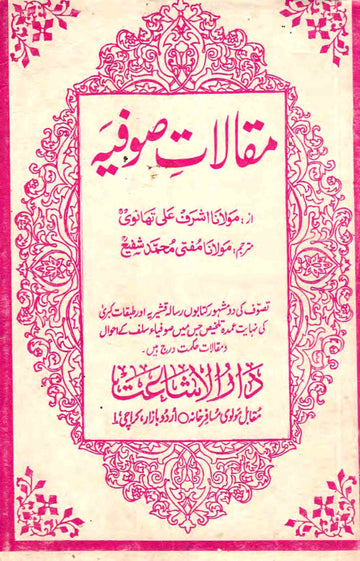 مقالاتِ صوفیہ
از: مولانا اشرف علی تھانویؒ
مترجم: مولانا مفتی محمد شفیعؒ
تصوّف کی دو مشہور کتابوں رسالہ قشیریہ اور طبقات کبریٰ
کی نہایت عمدہ تلخیص جس میں صوفیاء سلف کے احوال
و مقالات حکمت درج ہیں۔
دارُالاشاعت
مقابل مولوی مسافرخانہ ○ اُردو بازار، کراچی ۱